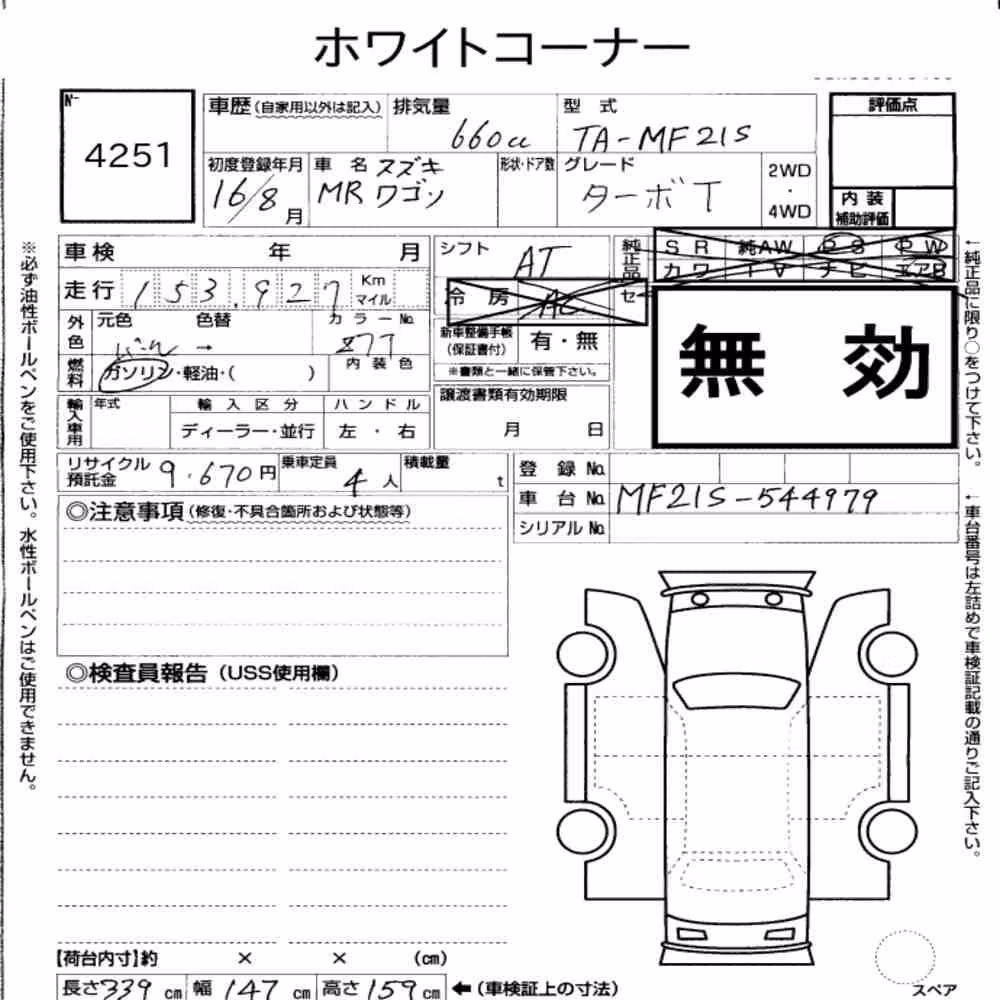 ホワイトコーナー
No
4251
車歴(自家用以外は記入)
排気量
660cc
型 式
TA-MF21S
評価点
初度登録年月
16/8月
車 名
スズキ
MRワゴン
形状・ドア数
グレード
ターボT
2WD
・
4WD
内 装
補助評価
車検 年 月
シフト
AT
純正品
SR 純AW PS PW
カワ TV ナビ エアB
走行 153,927 Km
マイル
冷 房 AC
セ
無 効
外色
元色 色替
→
カラーNo.
277
新車整備手帳
(保証書付)
有・無
※書類と一緒に保管下さい。
燃料
ガソリン・軽油・( )
内装色
輸入車用
年式
輸入区分
ディーラー・並行
ハンドル
左 ・ 右
譲渡書類有効期限
月 日
リサイクル
預託金
9.670円
乗車定員
4人
積載量
t
登 録 No.
車 台 No. MF21S-544979
シリアル No.
◎注意事項(修復・不具合箇所および状態等)
◎検査員報告(USS使用欄)
【荷台内寸】約 × × (cm)
長さ339cm 幅147cm 高さ159cm ←(車検証上の寸法)
スペア
※必ず油性ボールペンをご使用下さい。水性ボールペンはご使用できません。
←純正品に限り○をつけて下さい。
←車台番号は左詰めで車検証記載の通りご記入下さい。